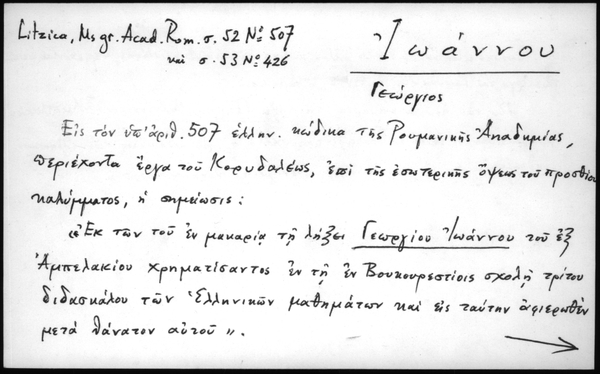 Litzica, Ms gr. Acad. Rom. σ. 52 Nο 507
καὶ σ. 53 Nο 426
Ἰωάννου
Γεώργιος
Εἰς τόν ὑπ' ἀριθ. 507 ἑλλην. κώδικα τῆς Ρουμανικῆς Ἀκαδημίας,
περιέχοντα ἔργα τοῦ Κορυδαλέως, ἐπὶ τῆς ἐσωτερικῆς ὄψεως τοῦ προσθίου
καλύμματος, ἡ σημείωσις:
«Ἐκ τῶν τοῦ ἐν μακαρίᾳ τῇ λήξει Γεωργίου Ἰωάννου τοῦ ἐξ
Ἀμπελακίου χρηματίσαντος ἐν τῇ ἐν Βουκουρεστίοις σχολῇ τρίτου
διδασκάλου τῶν Ἑλληνικῶν μαθημάτων καὶ εἰς ταύτην ἀφιερωθέν
μετά θάνατον αὐτοῦ».